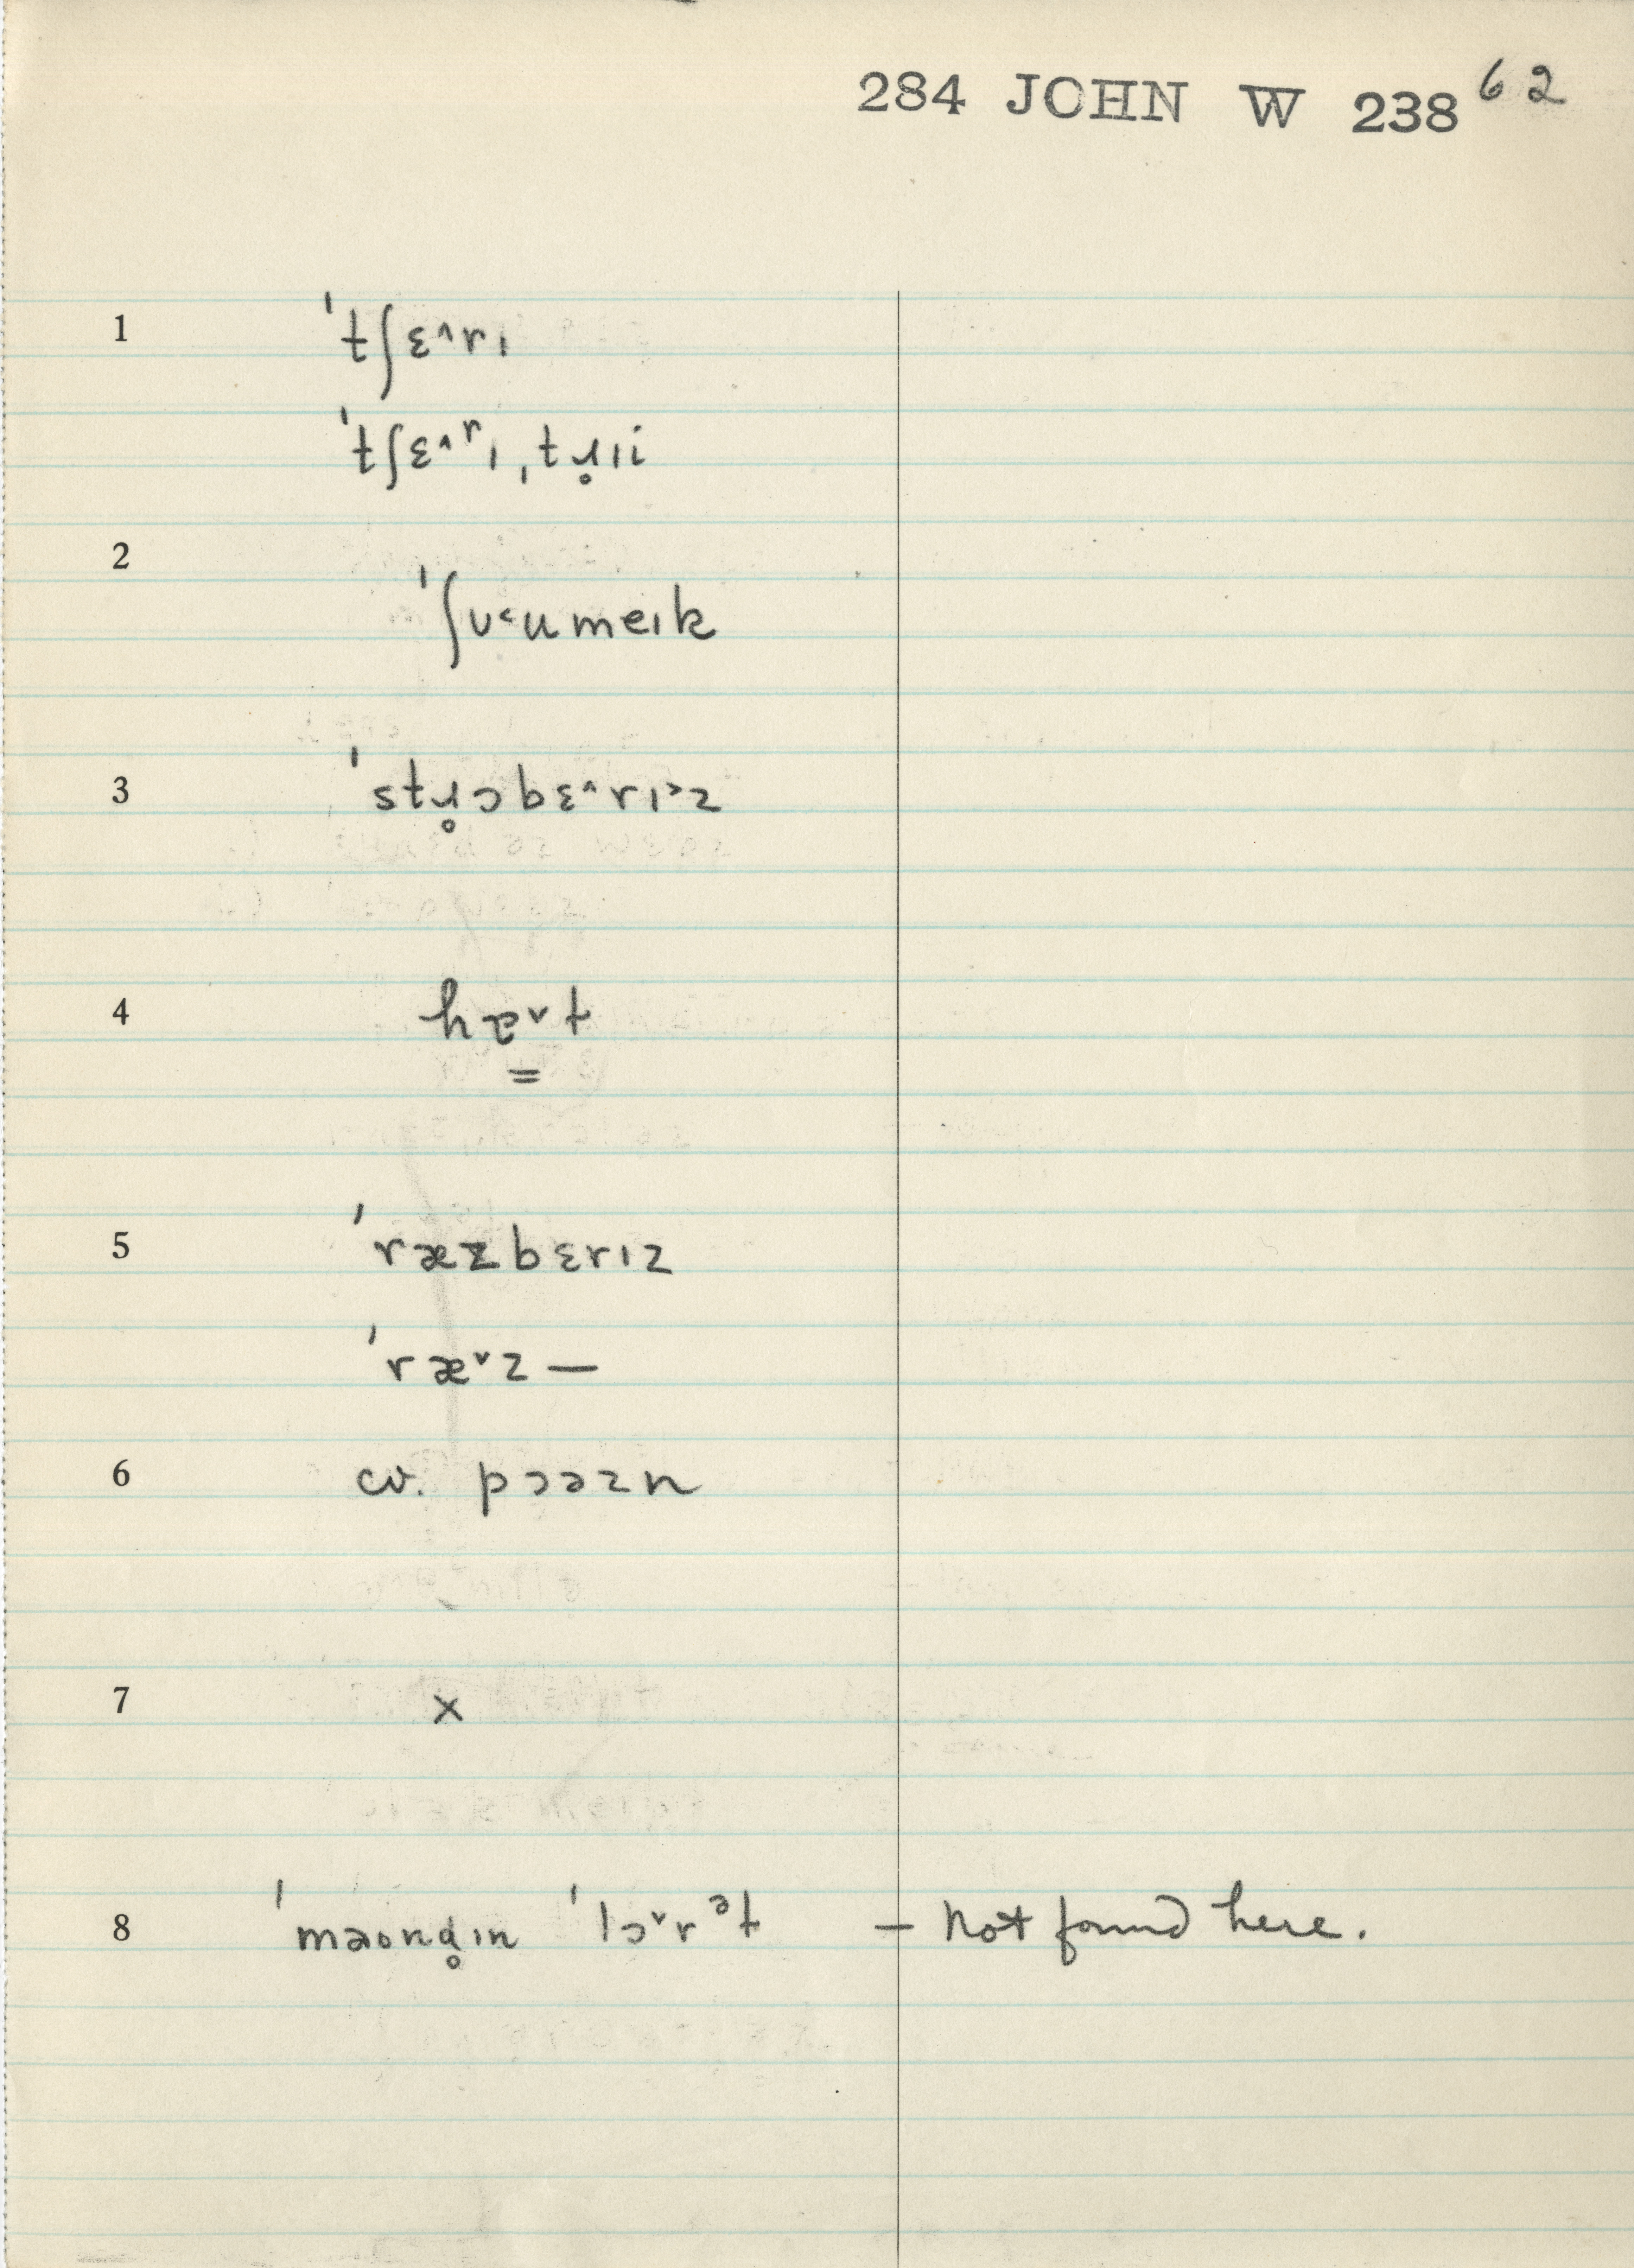 284 JOHN W 238 62
1 ˈtʃɛ^rɪ
ˈtʃɛ^rɪ, ˌtɹ̥ɪi
2 ˈʃʊ˂umeɪk
3 ˈstɹ̥ɔbɛ^rɪ˃z
4 hɐ̳˅t
5 ˈræzbɛrɪz
ˈræ˅z —
6 cv. pɔəzn
7 x
8 ˈmaʊnd̥ɪn ˈlɔ˅rᵊt — Not found here.